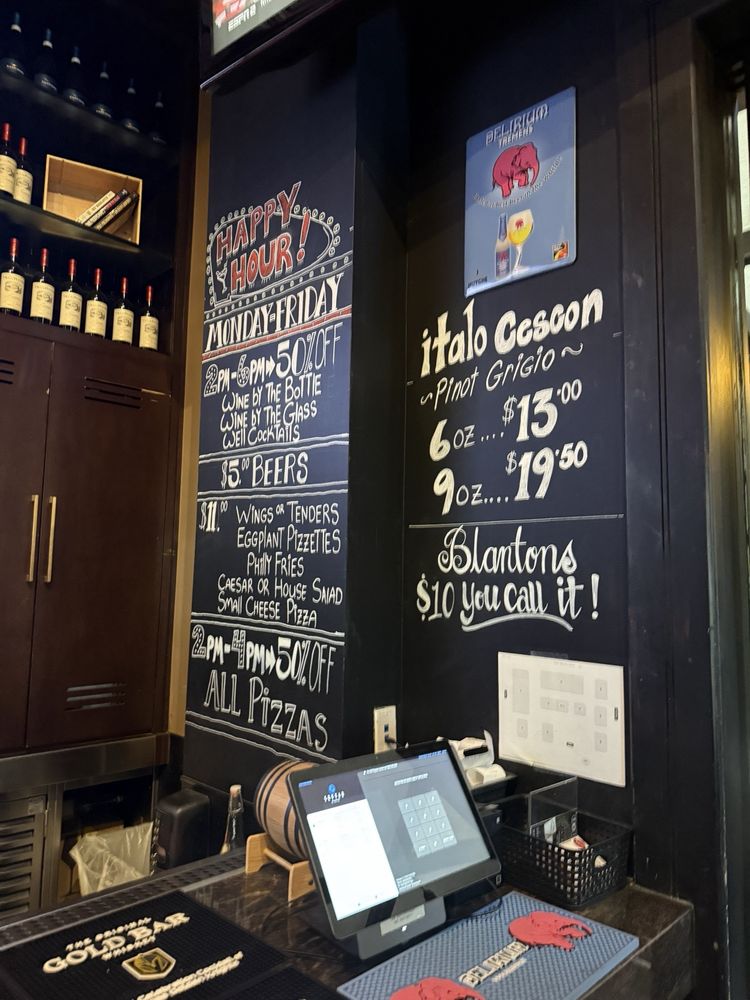 ESPN
HAPPY
HOUR!
MONDAY-FRIDAY
2PM-6PM 50% OFF
WINE BY THE BOTTLE
WINE BY THE GLASS
WELL COCKTAILS
$5.00 BEERS
$11.00 WINGS OR TENDERS
EGGPLANT PIZZETTES
PHILLY FRIES
CAESAR OR HOUSE SALAD
SMALL CHEESE PIZZA
2PM-4PM 50% OFF
ALL PIZZAS
DELIRIUM
TREMENS
italo Cescon
~Pinot Grigio~
6 oz .... $13.00
9 oz .... $19.50
Blantons
$10 You Call it!
THE ORIGINAL
GOLD BAR
WHISKEY
DELIRIUM